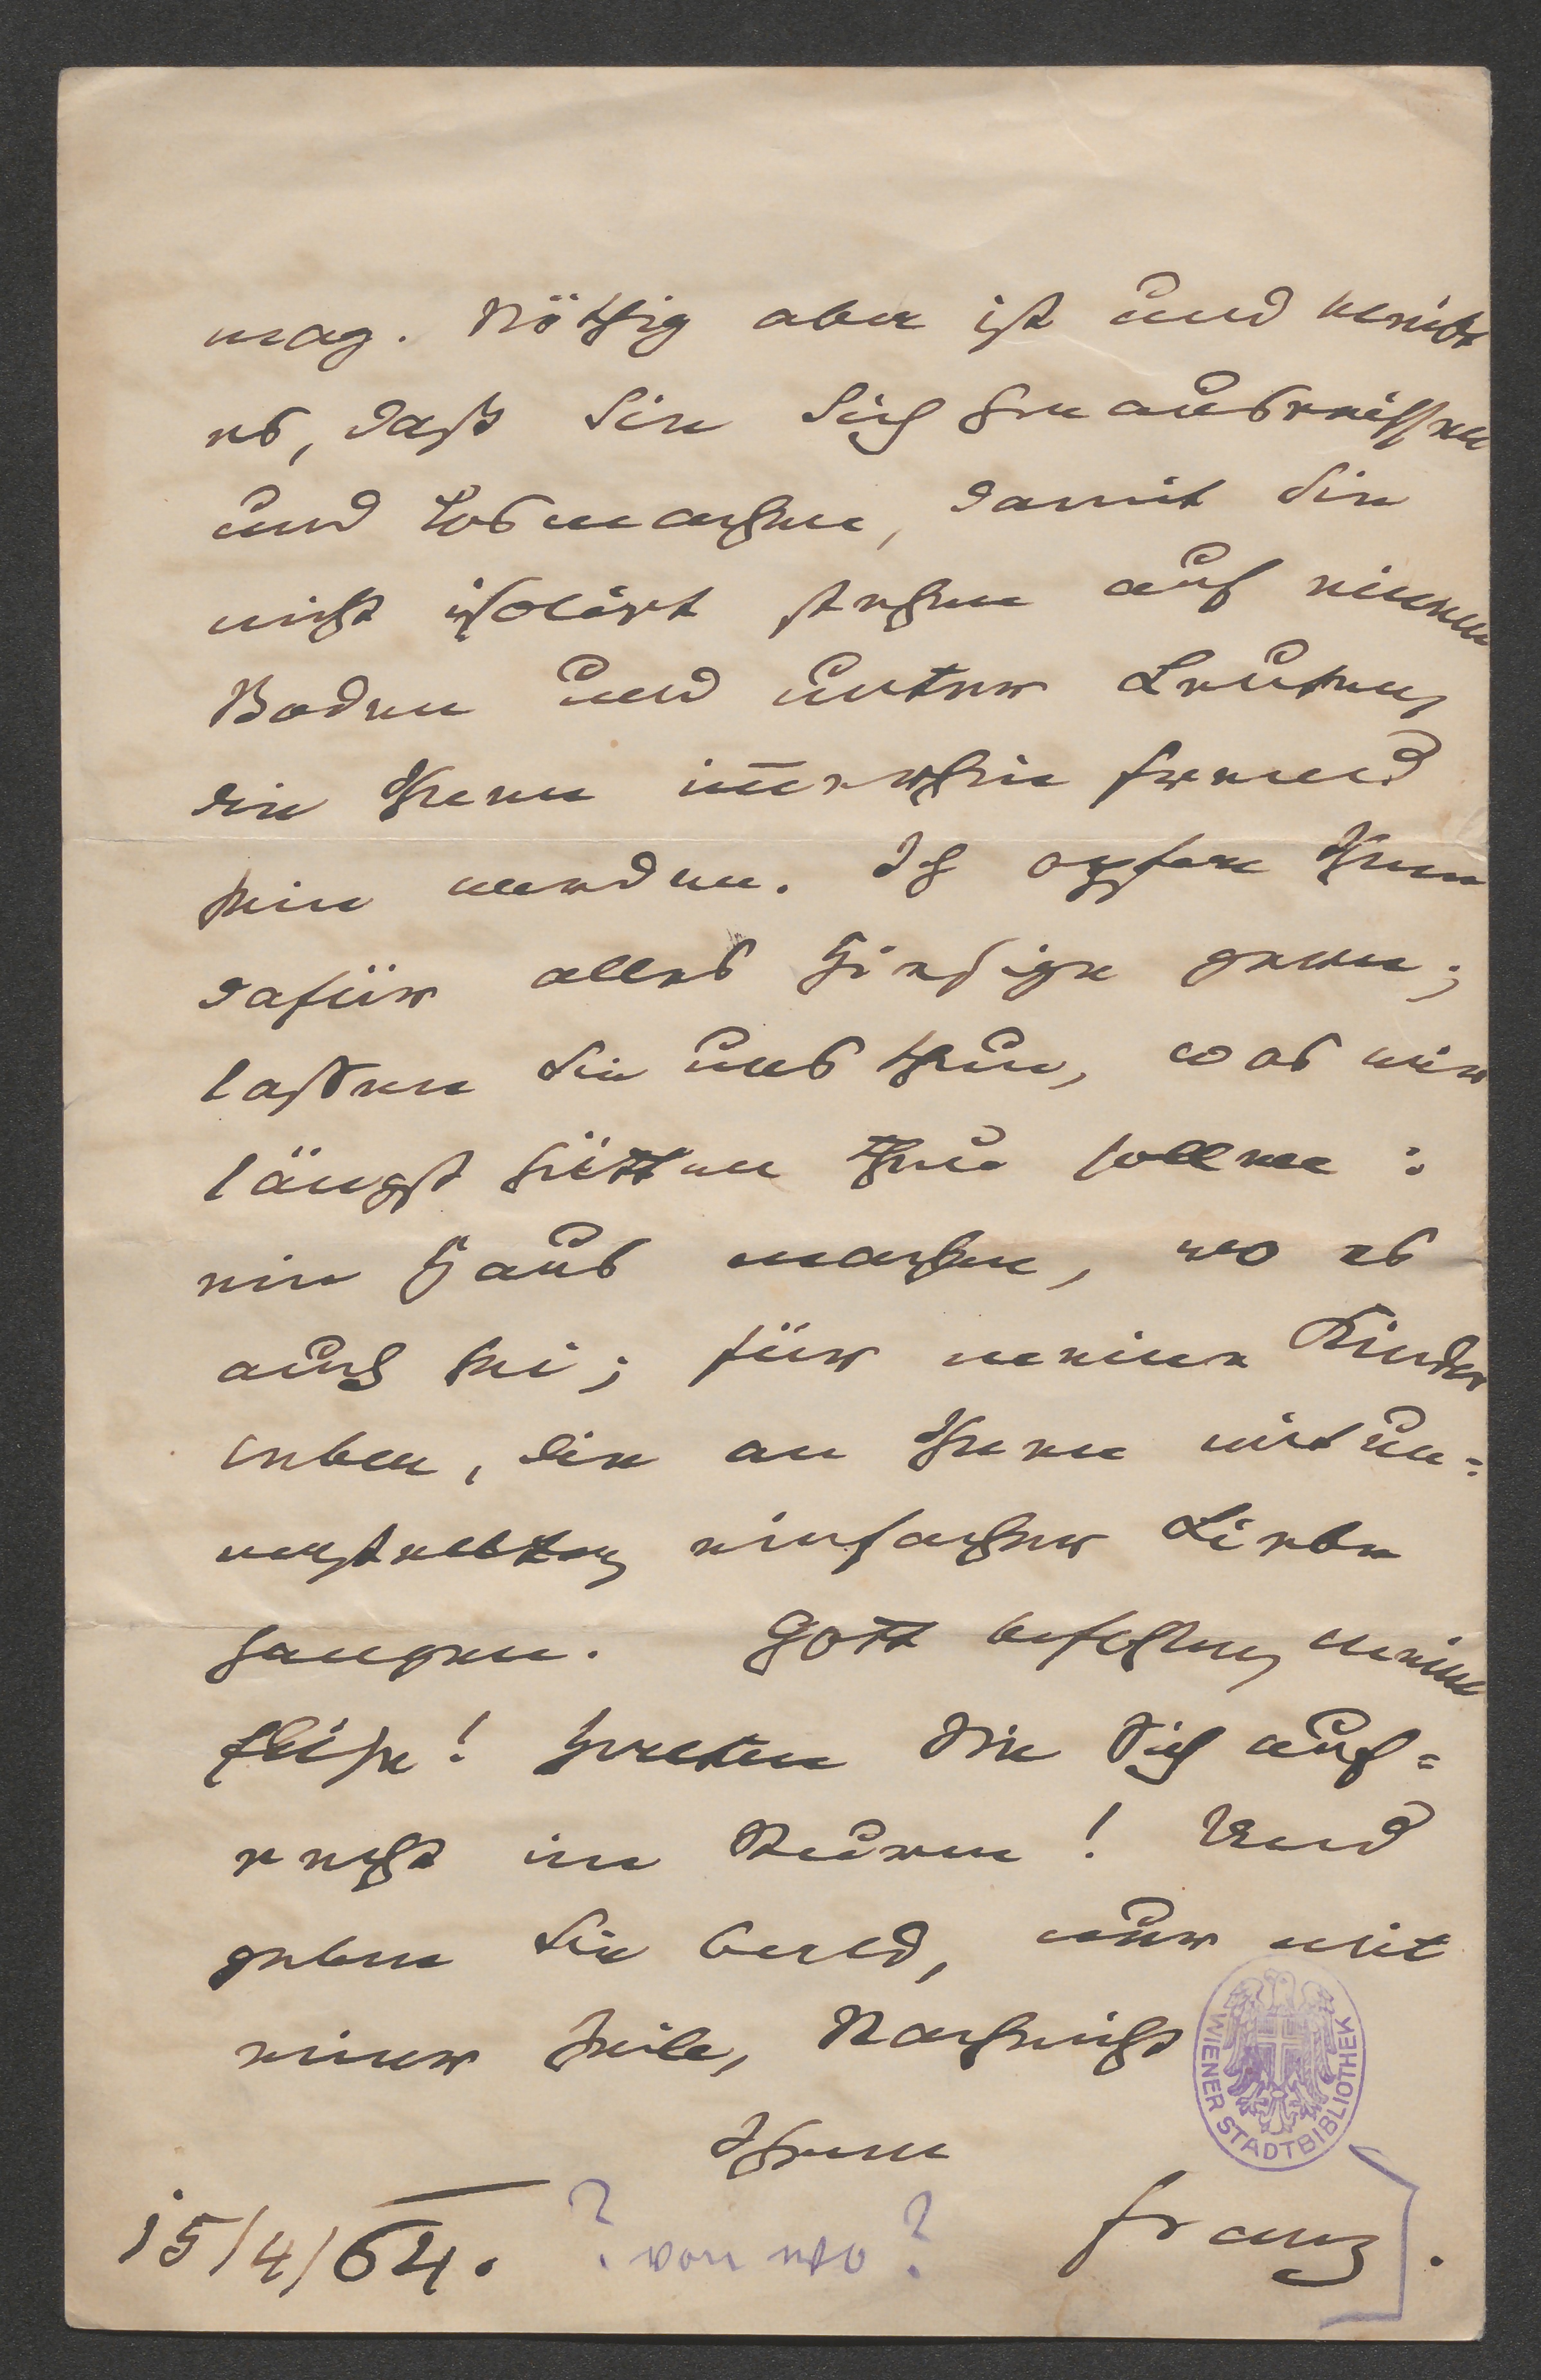 mag. Nöthig aber ist und bleibt
es, daß Sie Sich herausreißen
und losmachen, damit Sie
nicht isolirt stehen auf einem
Boden und unter Leuten,
die Ihnen immerhin fremd
sein werden. Ich opfere Ihnen
dafür alles Hiesige gern;
lassen Sie uns thun, was wir
längst hätten thun sollen:
ein Haus machen, wo es
auch sei; für meine Kinder
leben, die an Ihnen mit un=
einfacher Liebe
hangen. Gott befohlen, meine
Elise! Halten Sie Sich auf=
recht im Sturm! Und
geben Sie bald, nur mit
einer Zeile, Nachricht
Ihrem
15/4/64. ? von wo? Franz.
WIENER STADTBIBLIOTHEK